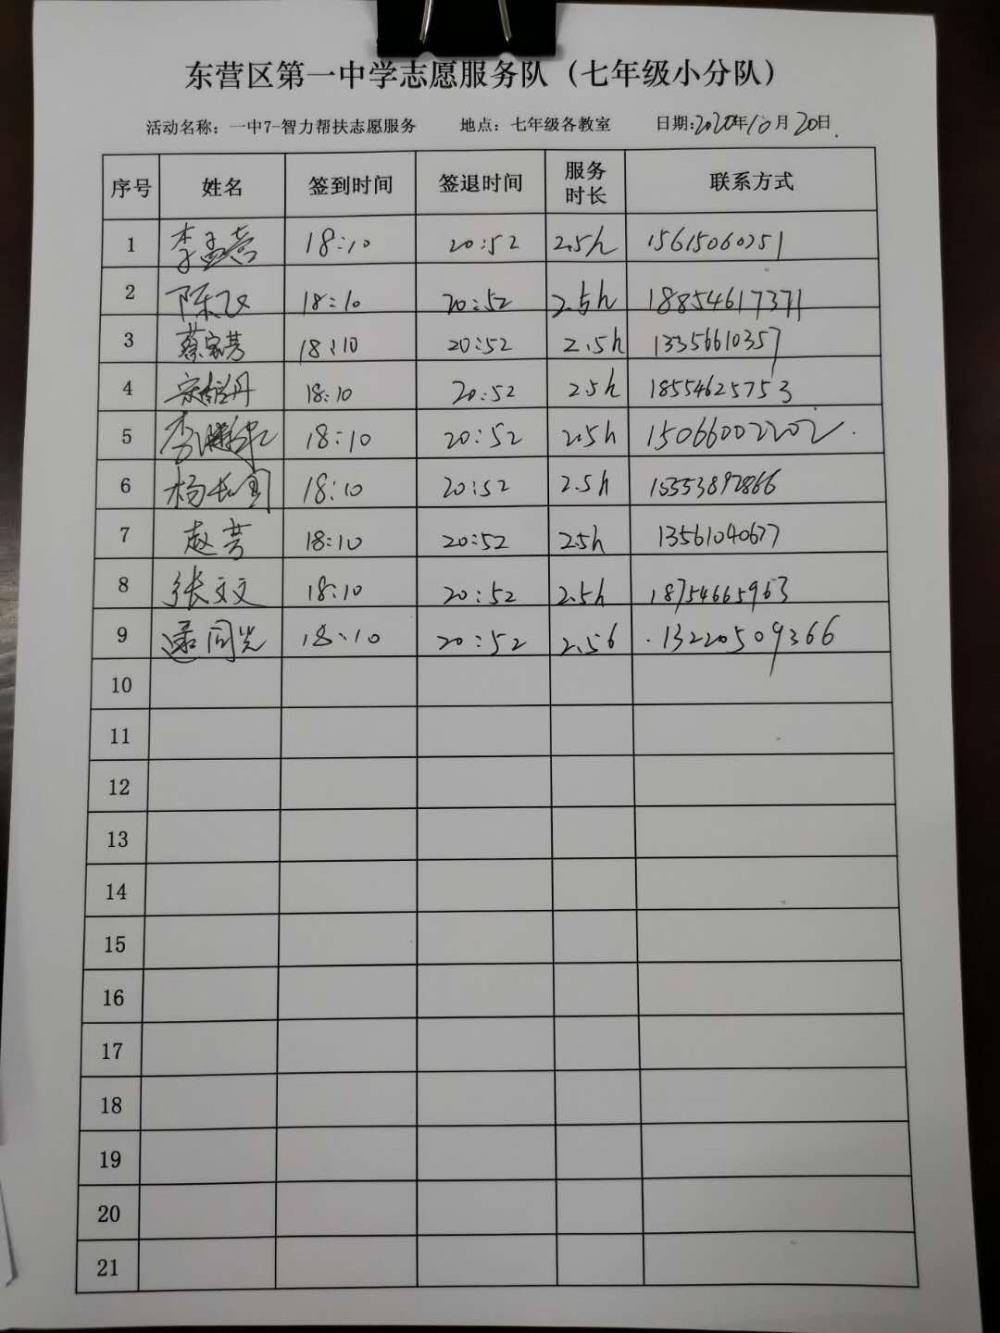 东营区第一中学志愿服务队（七年级小分队）
活动名称：一中7-智力帮扶志愿服务 地点：七年级各教室 日期:2020年10月20日.
序号 姓名 签到时间 签退时间 服务时长 联系方式
1 李孟喜 18:10 20:52 2.5h 15615060251
2 陈飞 18:10 20:52 2.5h 18854617371
3 蔡家芳 18:10 20:52 2.5h 13356610357
4 18:10 20:52 2.5h 18554625753
5 18:10 20:52 2.5h 15066002202.
6 杨长国 18:10 20:52 2.5h 15553892866
7 赵芳 18:10 20:52 25h 13561040677
8 张文文 18:10 20:52 2.5h 18754665963
9 逯同光 18:10 20:52 2.5h 13220509366
10
11
12
13
14
15
16
17
18
19
20
21